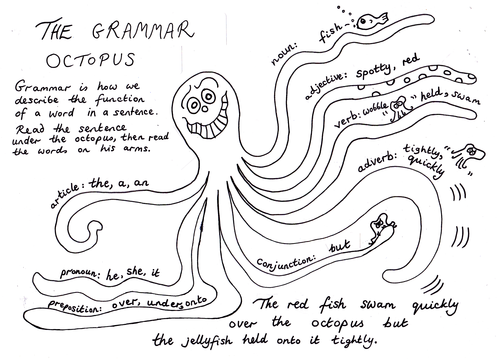 THE GRAMMAR
OCTOPUS
Grammar is how we
describe the function
of a word in a sentence.
Read the sentence
under the octopus, then read
the words on his arms.
noun: fish
adjective: spotty, red
verb: wobble, held, swam
adverb: tightly,
quickly
article: the, a, an
conjunction: but
pronoun: he, she, it
preposition: over, under, onto
The red fish swam quickly
over the octopus but
the jellyfish held onto it tightly.